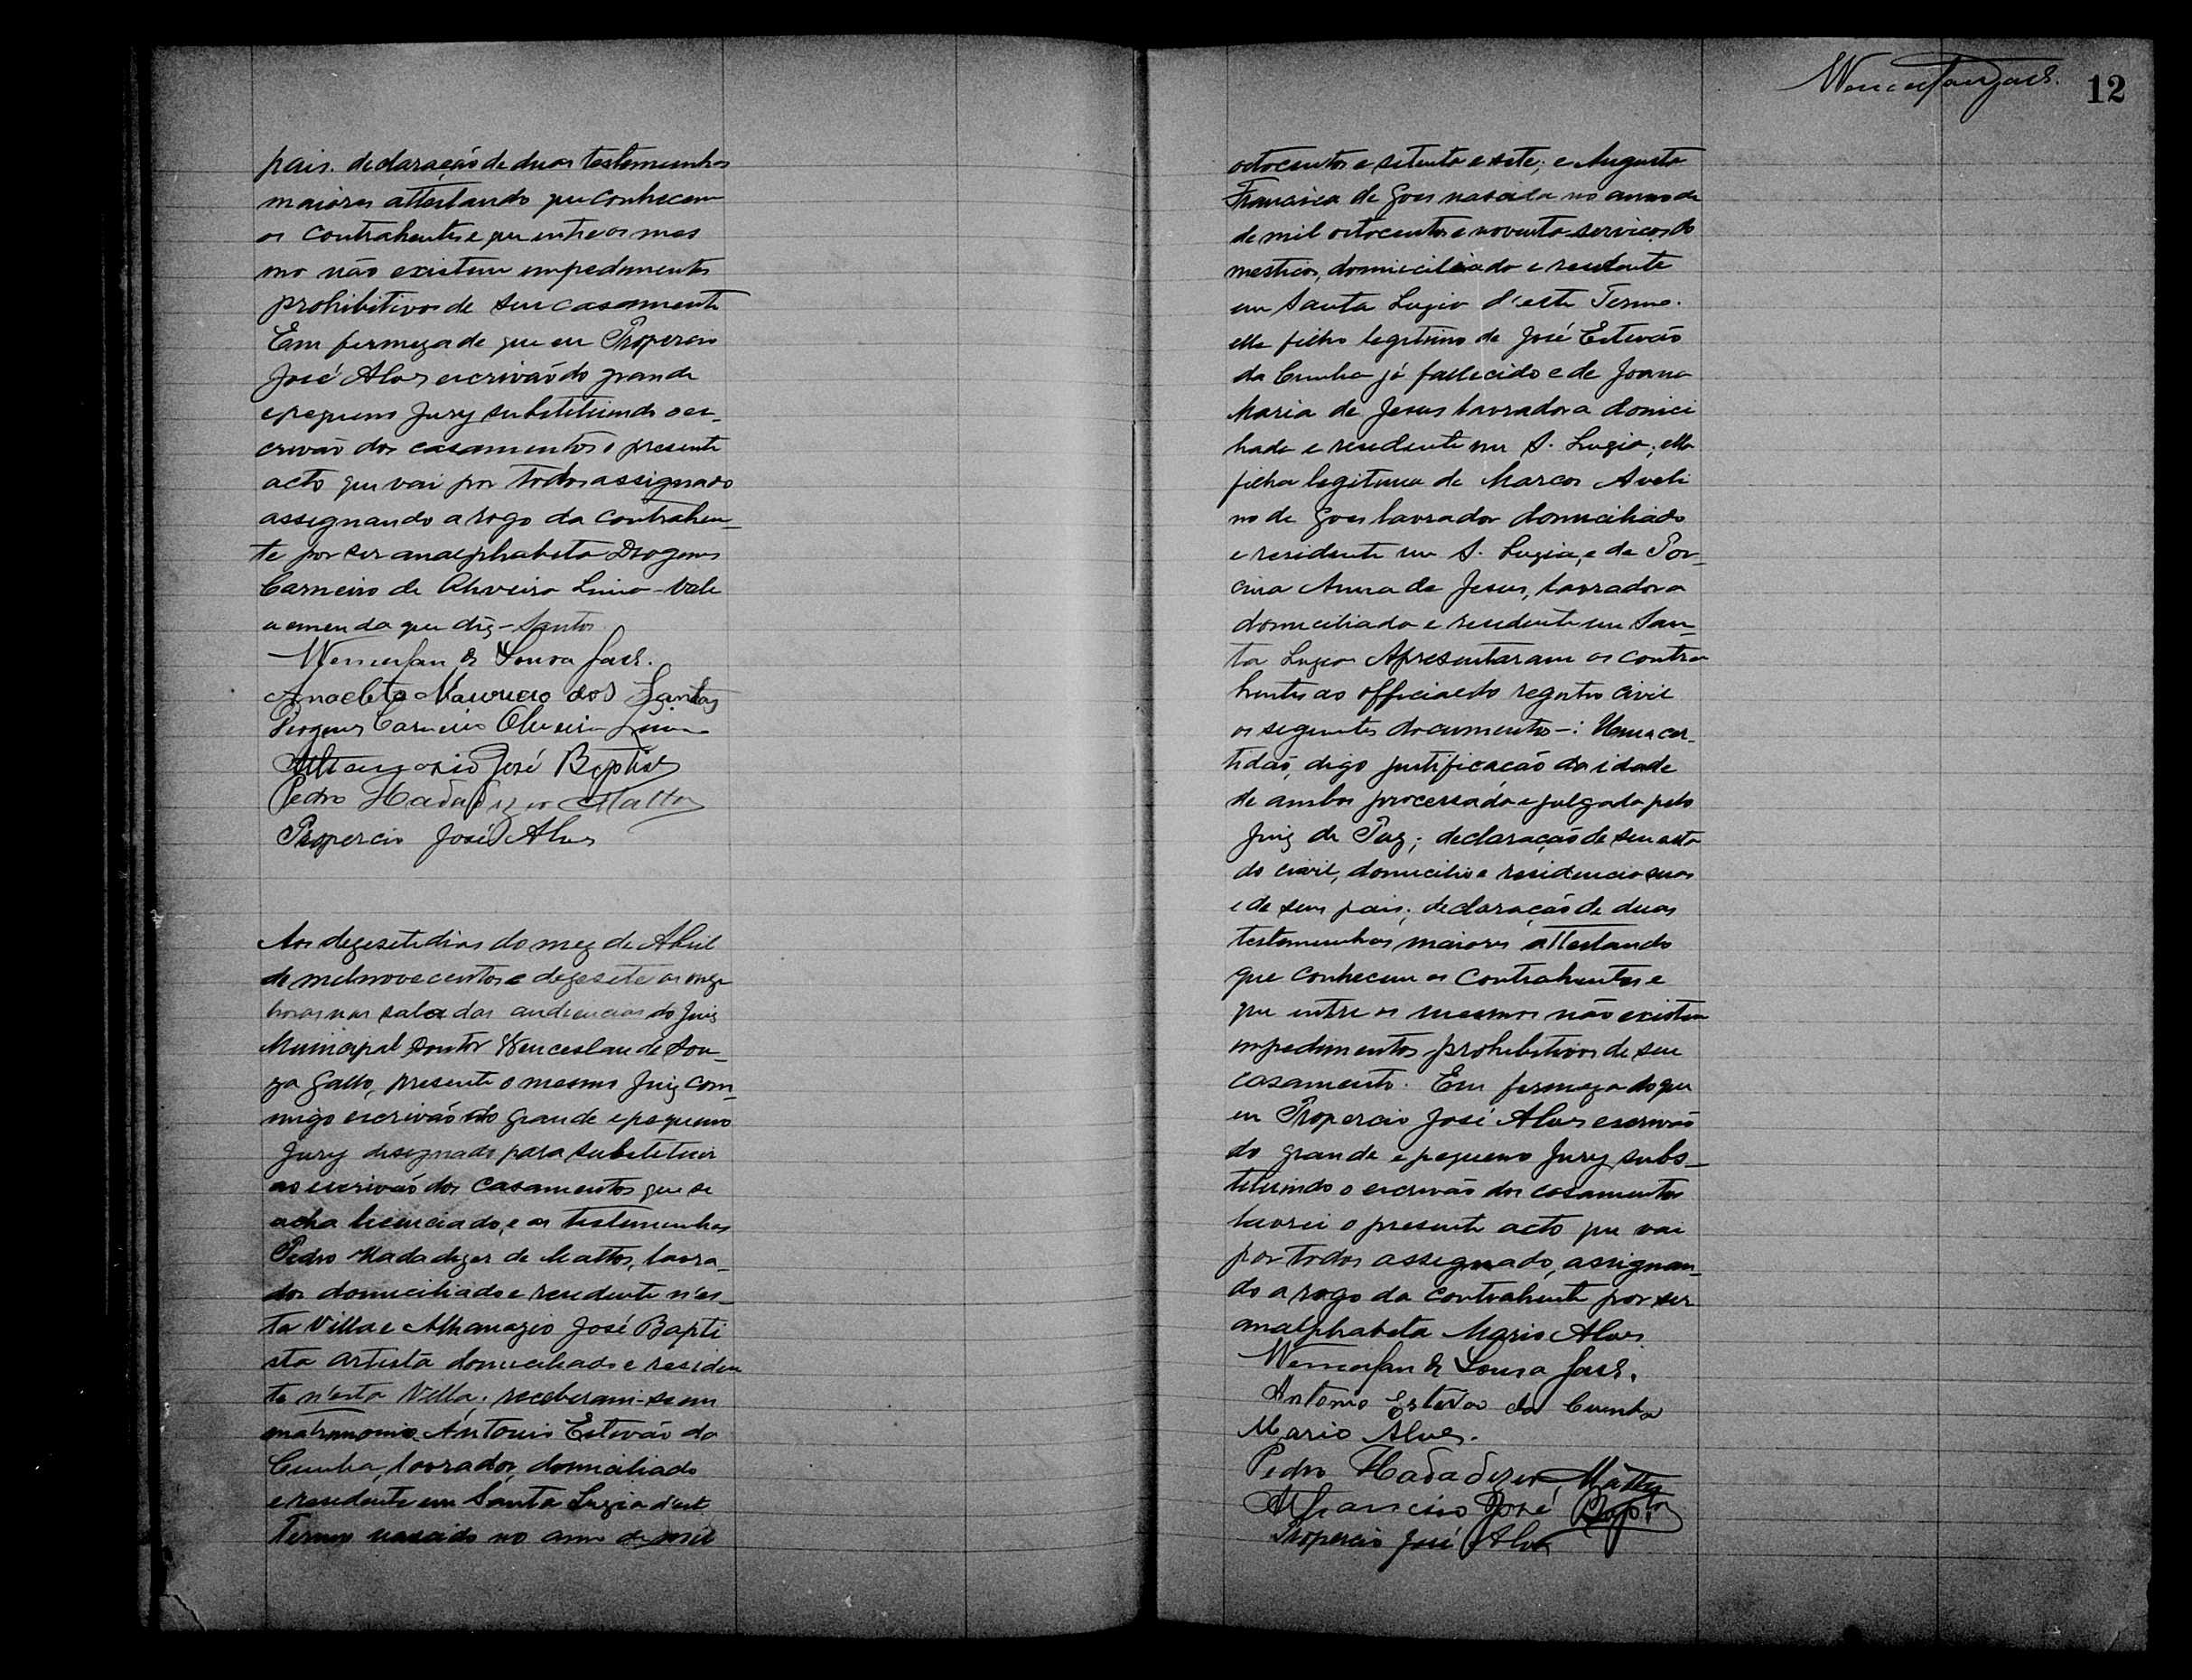 pais. declaração de duas testemunhas
maiores attestando que conhecem
os contrahentes e que entre os mes
mo não existem empedimentos
prohibitivos de seu casamento
Em firmeza de que eu Propercio
José Alves escrivão do grande
e pequeno Jury substituindo o es-
crivão dos casamentos o presente
acto que vai por todos assignado
assignando a rogo da contrahen-
te por ser analphabeta Diogenes
Carneiro de Oliveira Lima - Vale
a emenda que diz - Santos
Wenceslau de Souza
Anacleto Mauricio dos Santos
Diogenes Carneiro Oliveira Lima
Athanazio José Baptista
Pedro Hadadezer Mattos
Propercio José Alves
Aos dezesete dias do mez de Abril
de mil novecentos e dezesete as onze
horas nas sala das audiencias do Juiz
Municipal Doutor Wenceslau de Sou-
za Gallo, presente o mesmo Juiz com-
migo escrivão do grande e pequeno
Jury designado para substituir
ao escrivão dos casamentos que se
acha licenciado, e as testemunhas
Pedro Hadadezer de Mattos, lavra-
dor domiciliado e residente n'es-
ta Villa e Athanazio José Bapti
sta artista domiciliado e residen
te n'esta Villa. receberam-se em
matrimonio Antonio Estevão da
Cunha, lavrador, domiciliado
e residente em Santa Luzia d'est
Termo nascido no anno de mil
12
octocentos e setenta e sete; e Augusta
Francisca de Goes nascida no anno de
de mil octocentos e noventa serviços do
mesticos, domiciliado e residente
em Santa Luzia d'este Termo.
elle filho legitimo de José Estevão
da Cunha já fallecido e de Joana
Maria de Jesus lavradora domici
liada e residente em S. Luzia; ella
filha legitima de Marcos Aveli
no de Goes lavrador domiciliado
e residente em S. Luzia, e de Por-
cina Anna de Jesus, lavradora
domiciliada e residente em San-
ta Luzia Apresentaram os contra
hentes ao official do registro civil
os seguintes documentos -: Uma cer-
tidão, digo justificação da idade
de ambos processada e julgada pelo
Juiz de Paz; declaração de seu esta
do civil, domicilio e residencia suas
e de seus pais; declaração de duas
testemunhas maiores attestando
que conhecem os contrahentes e
que entre os mesmos não existem
empedimentos prohibitivos de seu
casamento. Em firmeza do que
eu Propercio José Alves escrivão
do grande e pequeno Jury subs-
tituindo o escrivão dos casamentos
lavrei o presente acto que vai
por todos assignado, assignan-
do a rogo da contrahente por ser
analphabeta Mario Alves
Wenceslau de Souza
Antonio Estevão da Cunha
Mario Alves.
Pedro Hadadezer Mattos
Athanazio José Bapta
Propercio José Alves